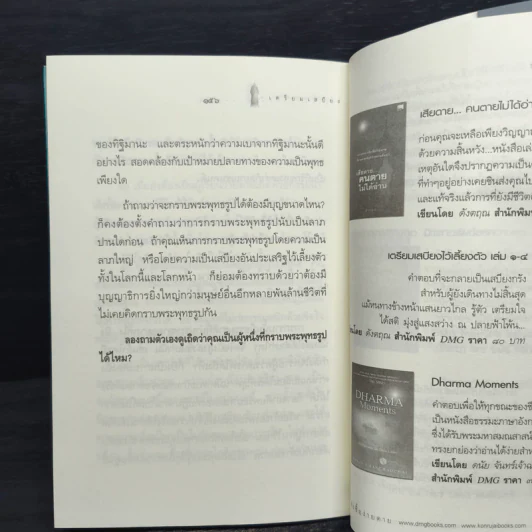 ๑๕๖
เตรียมเสบียง
ของทิฐิมานะ และตระหนักว่าความเบาจากทิฐิมานะนั้นดี
อย่างไร สอดคล้องกับเป้าหมายปลายทางของความเป็นพุทธ
เพียงใด
ถ้าถามว่าจะกราบพระพุทธรูปได้ต้องมีบุญขนาดไหน?
ก็คงต้องตั้งคำถามว่าการกราบพระพุทธรูปนับเป็นลาภ
ปานใดก่อน ถ้าคุณเห็นการกราบพระพุทธรูปโดยความเป็น
ลาภใหญ่ หรือโดยความเป็นเสบียงอันประเสริฐไว้เลี้ยงตัว
ทั้งในโลกนี้และโลกหน้า ก็ย่อมต้องทราบด้วยว่าต้องมี
บุญญาธิการยิ่งใหญ่กว่ามนุษย์อื่นอีกหลายพันล้านชีวิตที่
ไม่เคยคิดกราบพระพุทธรูปกัน
ลองถามตัวเองดูเถิดว่าคุณเป็นผู้หนึ่งที่กราบพระพุทธรูป
ได้ไหม?
เสียดาย... คนตายไม่ได้อ่า
ก่อนคุณจะเหลือเพียงวิญญา
ด้วยความสิ้นหวัง...หนังสือเล่
เหตุอันใดจึงปรากฏความเป็น
ที่ทำๆอยู่อย่างเคยชินส่งคุณไป
และแท้จริงแล้วการที่ยังมีชีวิต
เขียนโดย ดังตฤณ สำนักพิมพ์
เสียดาย...
คนตาย
ไม่ได้อ่าน
เตรียมเสบียงไว้เลี้ยงตัว เล่ม ๑-๔
คำตอบที่จะกลายเป็นเสบียงกรัง
สำหรับผู้ยังเดินทางไม่สิ้นสุด
แม้หนทางข้างหน้าแสนยาวไกล รู้ตัว เตรียมใจ
ได้สติ มุ่งสู่แสงสว่าง ณ ปลายฟ้าโพ้น...
โดย ดังตฤณ สำนักพิมพ์ DMG ราคา ๘๐ บาท
Dharma Moments
คำตอบเพื่อให้ทุกขณะของชี
เป็นหนังสือธรรมะภาษาอังก
ซึ่งได้รับพระมหาสมณสาสน์
ทรงยกย่องว่าอ่านได้ง่ายสำห
เขียนโดย ดนัย จันทร์เจ้าฉ
สำนักพิมพ์ DMG ราคา
DHARMA
Moments
www.dmgbooks.com www.konrujaibooks.com